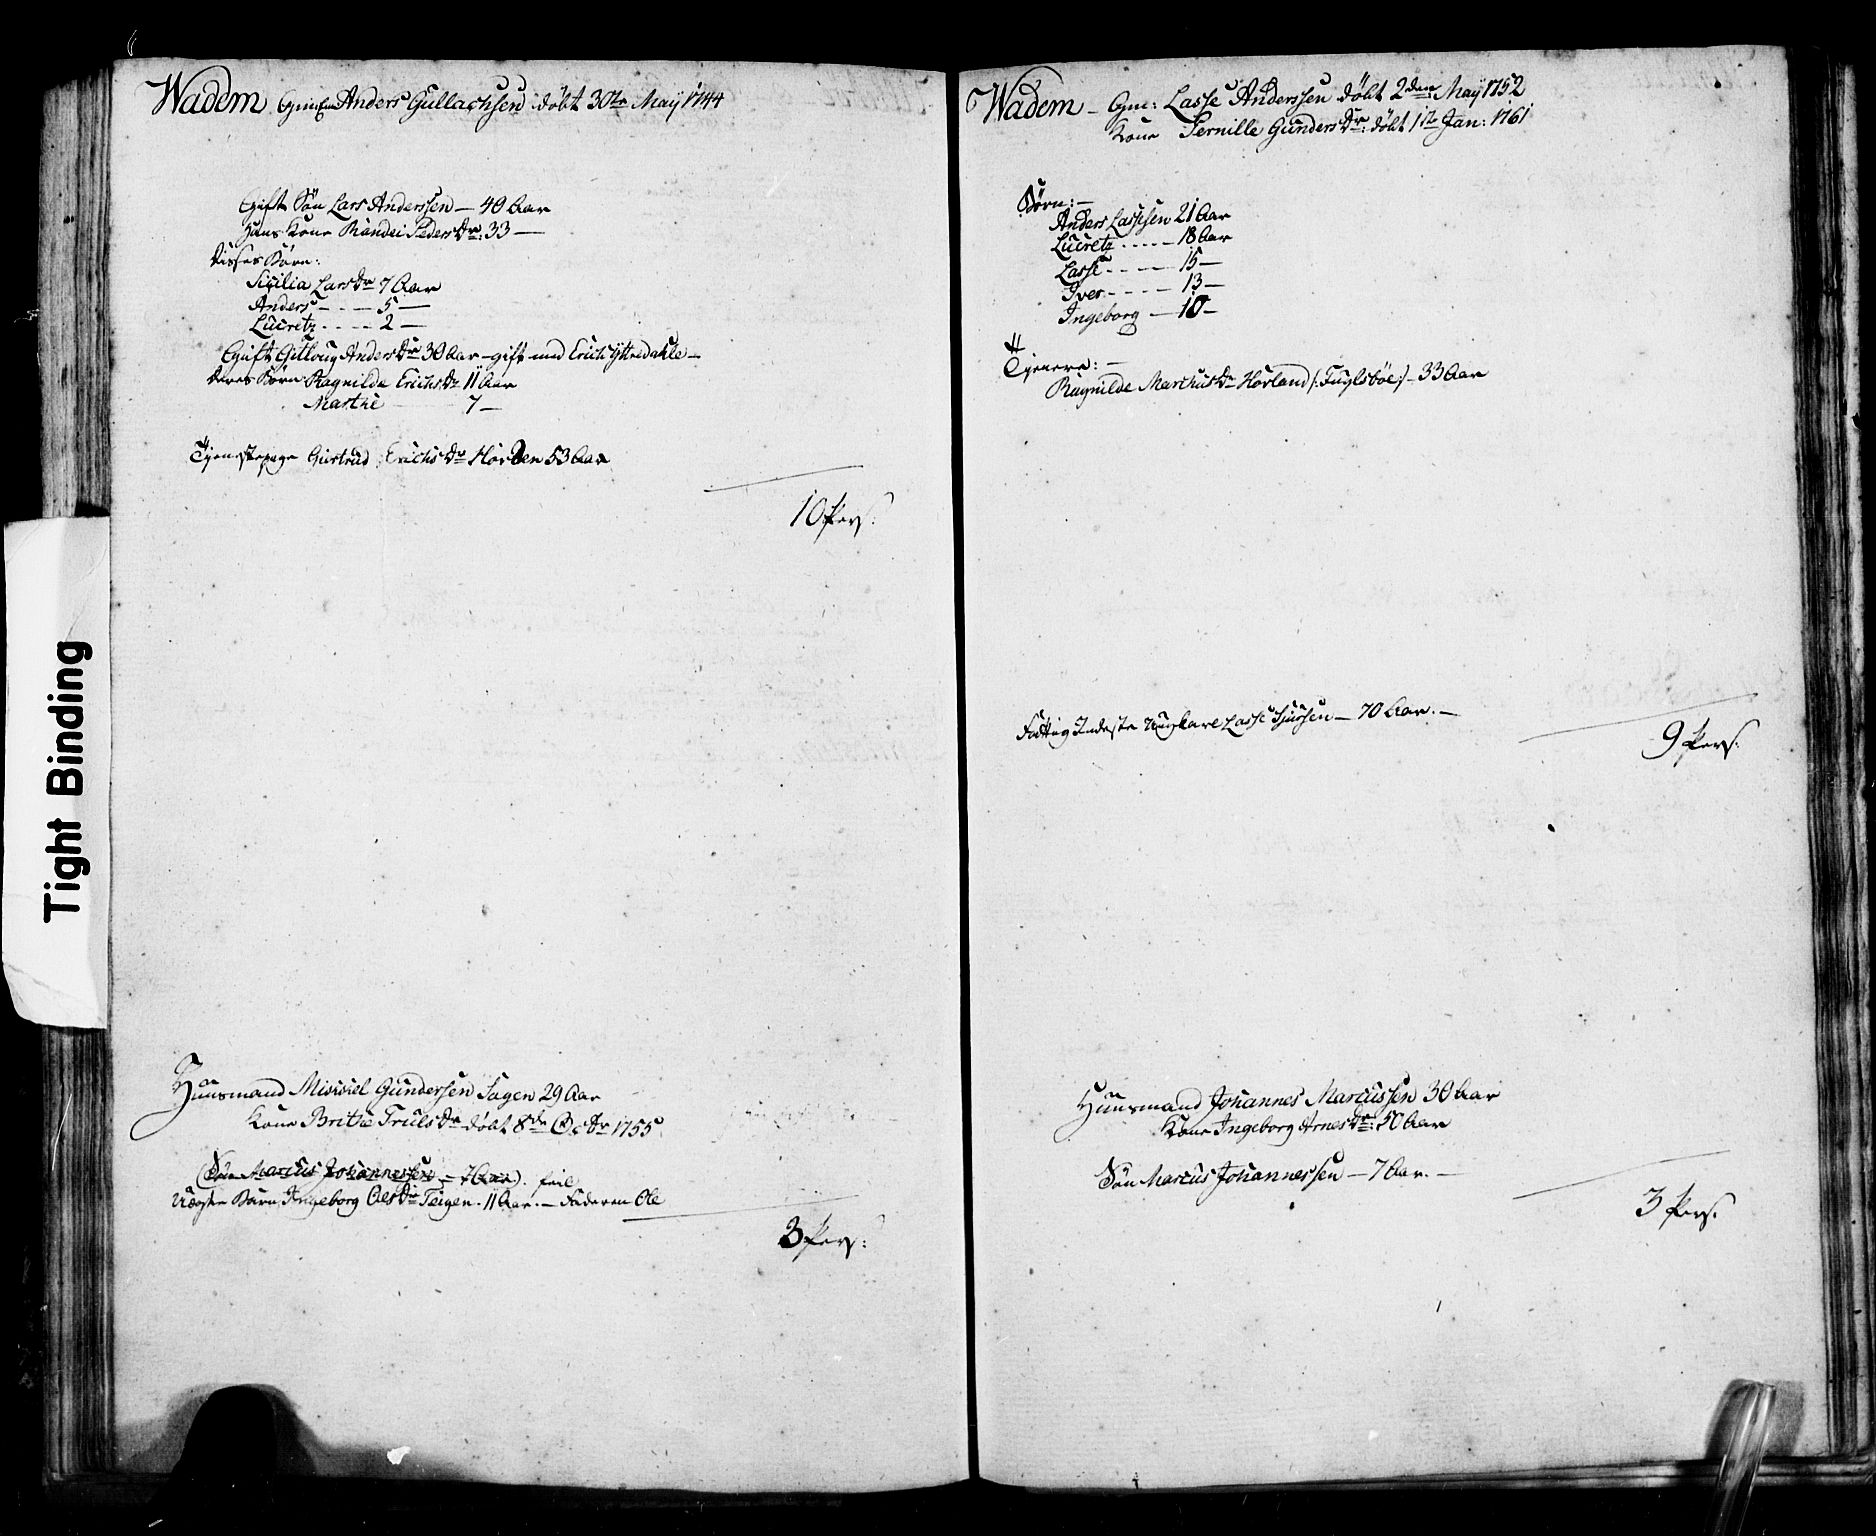 Tight Binding
Wadem Gmd Anders Gullachsen döbt 30te Maÿ 1744
Gift Sön Lars Anderssen — 40 Aar
Hans Kone Randei Peders Dr: 33 —
Disses Börn:
Sicilia Lars Dr 7 Aar
Anders - - - - 5 —
Lucretz - - - - 2 —
Gift Gitloug Anders Dr 30 Aar — gift med Erich Yttredahle —
Deres Börn: Ragnilda Erichs Dr 11 Aar
Marthe 7 —
Tjenestepige Giertrud Erichs Dr Hovden 53 Aar
10 Pers:
Huusmand Missiel Gundersen Sagen 29 Aar
Kone Brithe Truls Dr döbt 8de Oc Br 1755
(Sön Marcus Johannessen — 7 Aar). feil
Uægte Barn Ingeborg Ols Dr Teigen. 11 Aar. — Faderen Ole
3 Pers:
Wadem — Gm: Lasse Anderssen döbt 2den Maÿ 1752
Kone Pernille Gunders Dr: döbt 1te Jan: 1761
Börn: —
Anders Lassesen 21 Aar
Lucretz - - - - - 18 Aar
Lasse - - - — 15 —
Iver - - - - — 13 —
Ingeborg — 10 —
Tjenere: —
Ragnilde Marchus Dr Hovland /: Fuglsböe :/ — 33 Aar
Fattig Inderste Ungkarl Lasse Sjurssen — 70 Aar. —
9 Pers:
Huusmand Johannes Marcussen 30 Aar
Kone Ingeborg Arnes Dr: 50 Aar
Sön Marcus Johannessen — 7 Aar. —
3 Pers.